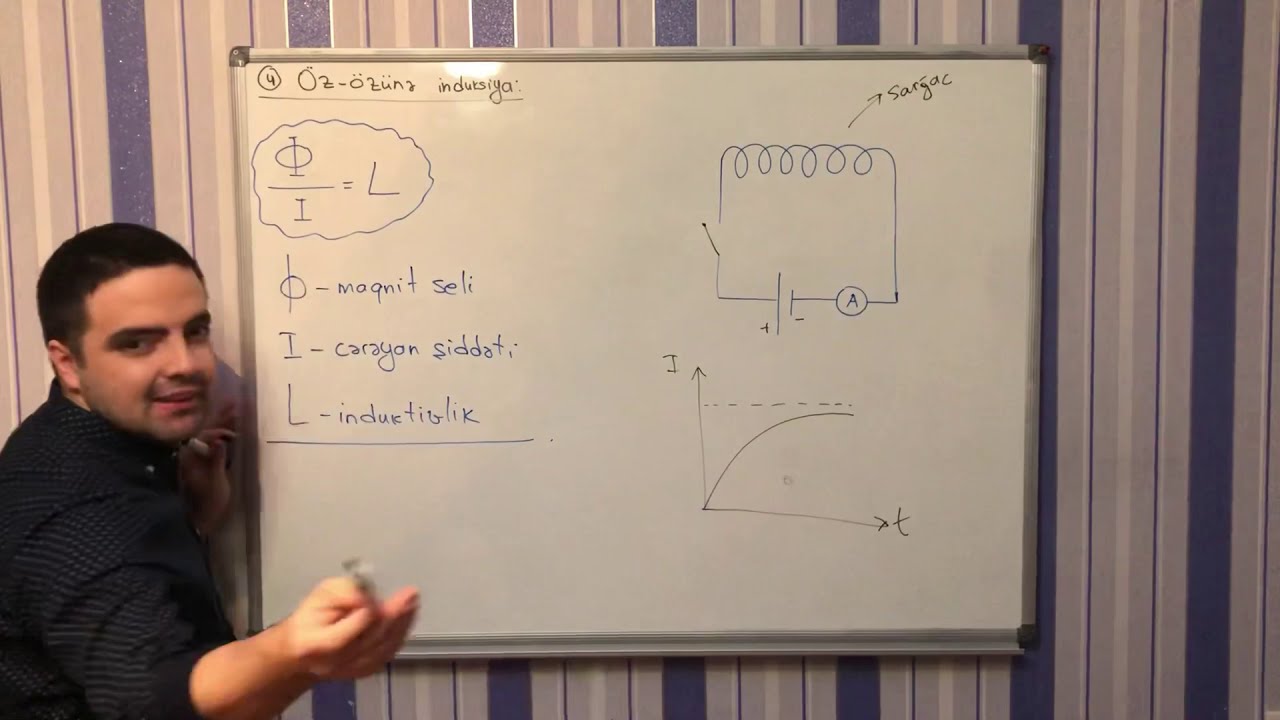 4 Öz-özünə induksiya:
Φ/I = L
Φ - maqnit seli
I - cərəyan şiddəti
L - induktivlik
sarğac
+ - A
I
t